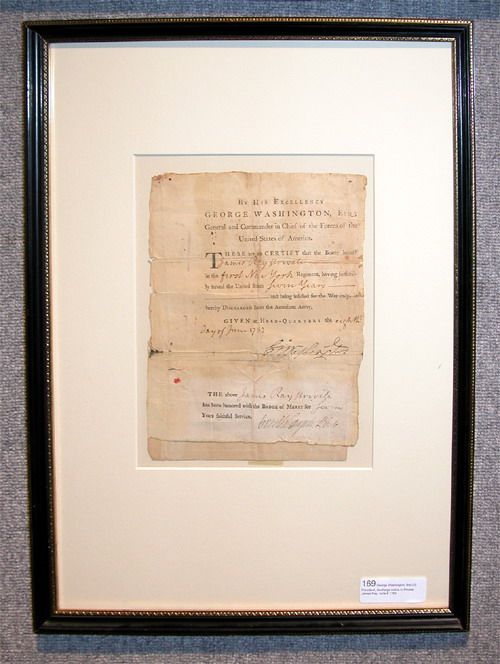 By His Excellency
GEORGE WASHINGTON, Esq;
General and Commander in Chief of the Forces of the
United States of America.
THESE are to CERTIFY that the Bearer hereof
James Ray Private
in the first New York Regiment, having faithful-
ly served the United States Seven Years
and being inlisted for the War only, is
hereby DISCHARGED from the American Army.
GIVEN at HEAD-QUARTERS the
Day of June 1783
THE above James Ray Private
has been honored with the BADGE of MERIT for
Years faithful Service.
169 George Washington,
President, discharge
James Ray, June 8 1783